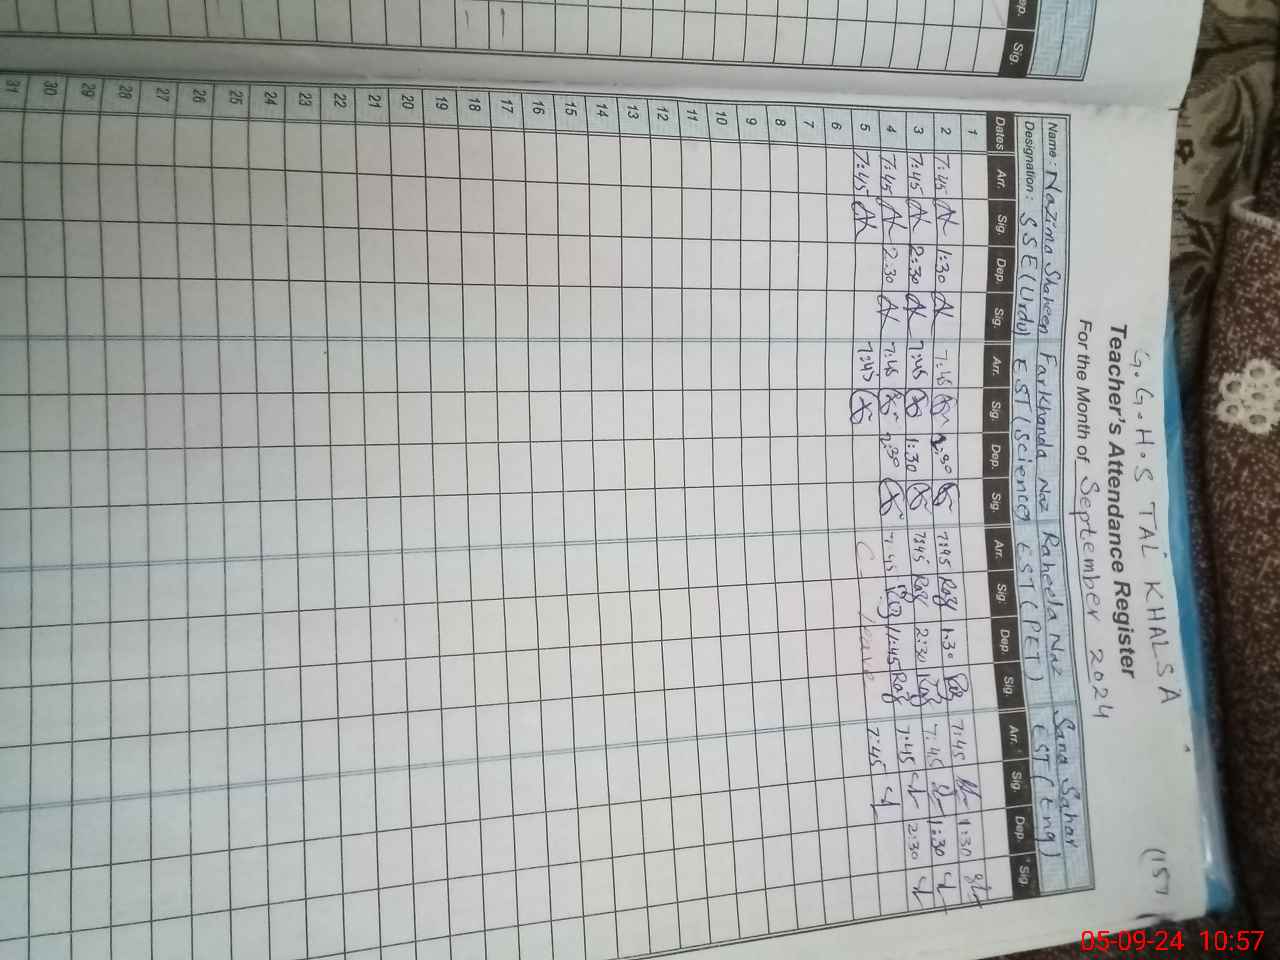 G.G.H.S TAL KHALSA (157
Teacher's Attendance Register
For the Month of September 2024
Name: Nazima Shaheen Farkhanda Naz Raheela Naz Sana Sahar
Designation: SSE(Urdu) EST(Science) EST(PET) EST(Eng)
Dates Arr. Sig. Dep. Sig. Arr. Sig. Dep. Sig. Arr. Sig. Dep. Sig. Arr. Sig. Dep. Sig.
1
2 7:45 1:30 7:45 1:30 7:45 Raz 1:30 Raz 7:45 1:30
3 7:45 2:30 7:45 1:30 7:45 Raz 2:30 Raz 7:45 1:30
4 7:45 2:30 7:45 2:30 7:45 Raz 11:45 Raz 7:45 2:30
5 7:45 7:45 C leave 7:45
6
7
8
9
10
11
12
13
14
15
16
17
18
19
20
21
22
23
24
25
26
27
28
29
30
31
ep.
Sig.
05-09-24 10:57